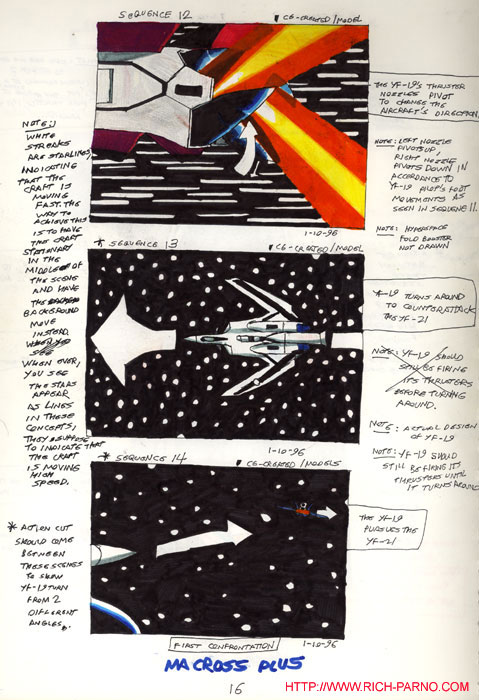 SEQUENCE 12
CG-CREATED/MODEL
THE YF-19'S THRUSTER
NOZZLES PIVOT
TO CHANGE THE
AIRCRAFT'S DIRECTION.
NOTE:
WHITE
STREAKS
ARE STARLINES,
INDICATING
THAT THE
CRAFT IS
MOVING
FAST. THE
WAY TO
ACHIEVE THIS
IS TO HAVE
THE CRAFT
STATIONARY
IN THE
MIDDLE OF
THE SCENE
AND HAVE
THE
BACKGROUND
MOVE
INSTEAD.
WHEN EVER,
YOU SEE
THE STARS
APPEAR
AS LINES
IN THESE
CONCEPTS,
THEY SUPPOSE
TO INDICATE THAT
THE CRAFT
IS MOVING
HIGH
SPEED.
NOTE: LEFT NOZZLE
PIVOTS UP,
RIGHT NOZZLE
PIVOTS DOWN IN
ACCORDANCE TO
YF-19 PILOT'S FOOT
MOVEMENTS AS
SEEN IN SEQUENCE 11.
NOTE: HYPERSPACE
FOLD BOOSTER
NOT DRAWN
1-10-96
* SEQUENCE 13
CG-CREATED/MODEL
-19 TURNS AROUND
TO COUNTERATTACK
THE YF-21
NOTE: YF-19 SHOULD
STILL BE FIRING
ITS THRUSTERS
BEFORE TURNING
AROUND.
NOTE: ACTUAL DESIGN
OF YF-19
NOTE: YF-19 SHOULD
STILL BE FIRING ITS
THRUSTERS UNTIL
IT TURNS AROUND
1-10-96
* SEQUENCE 14
CG-CREATED/MODELS
* ACTION CUT
SHOULD COME
BETWEEN
THESE SCENES
TO SHOW
YF-19 TURN
FROM 2
DIFFERENT
ANGLES.
THE YF-19
PURSUES THE
YF-21
FIRST CONFRONTATION
1-10-96
MACROSS PLUS
16
HTTP://WWW.RICH-PARNO.COM